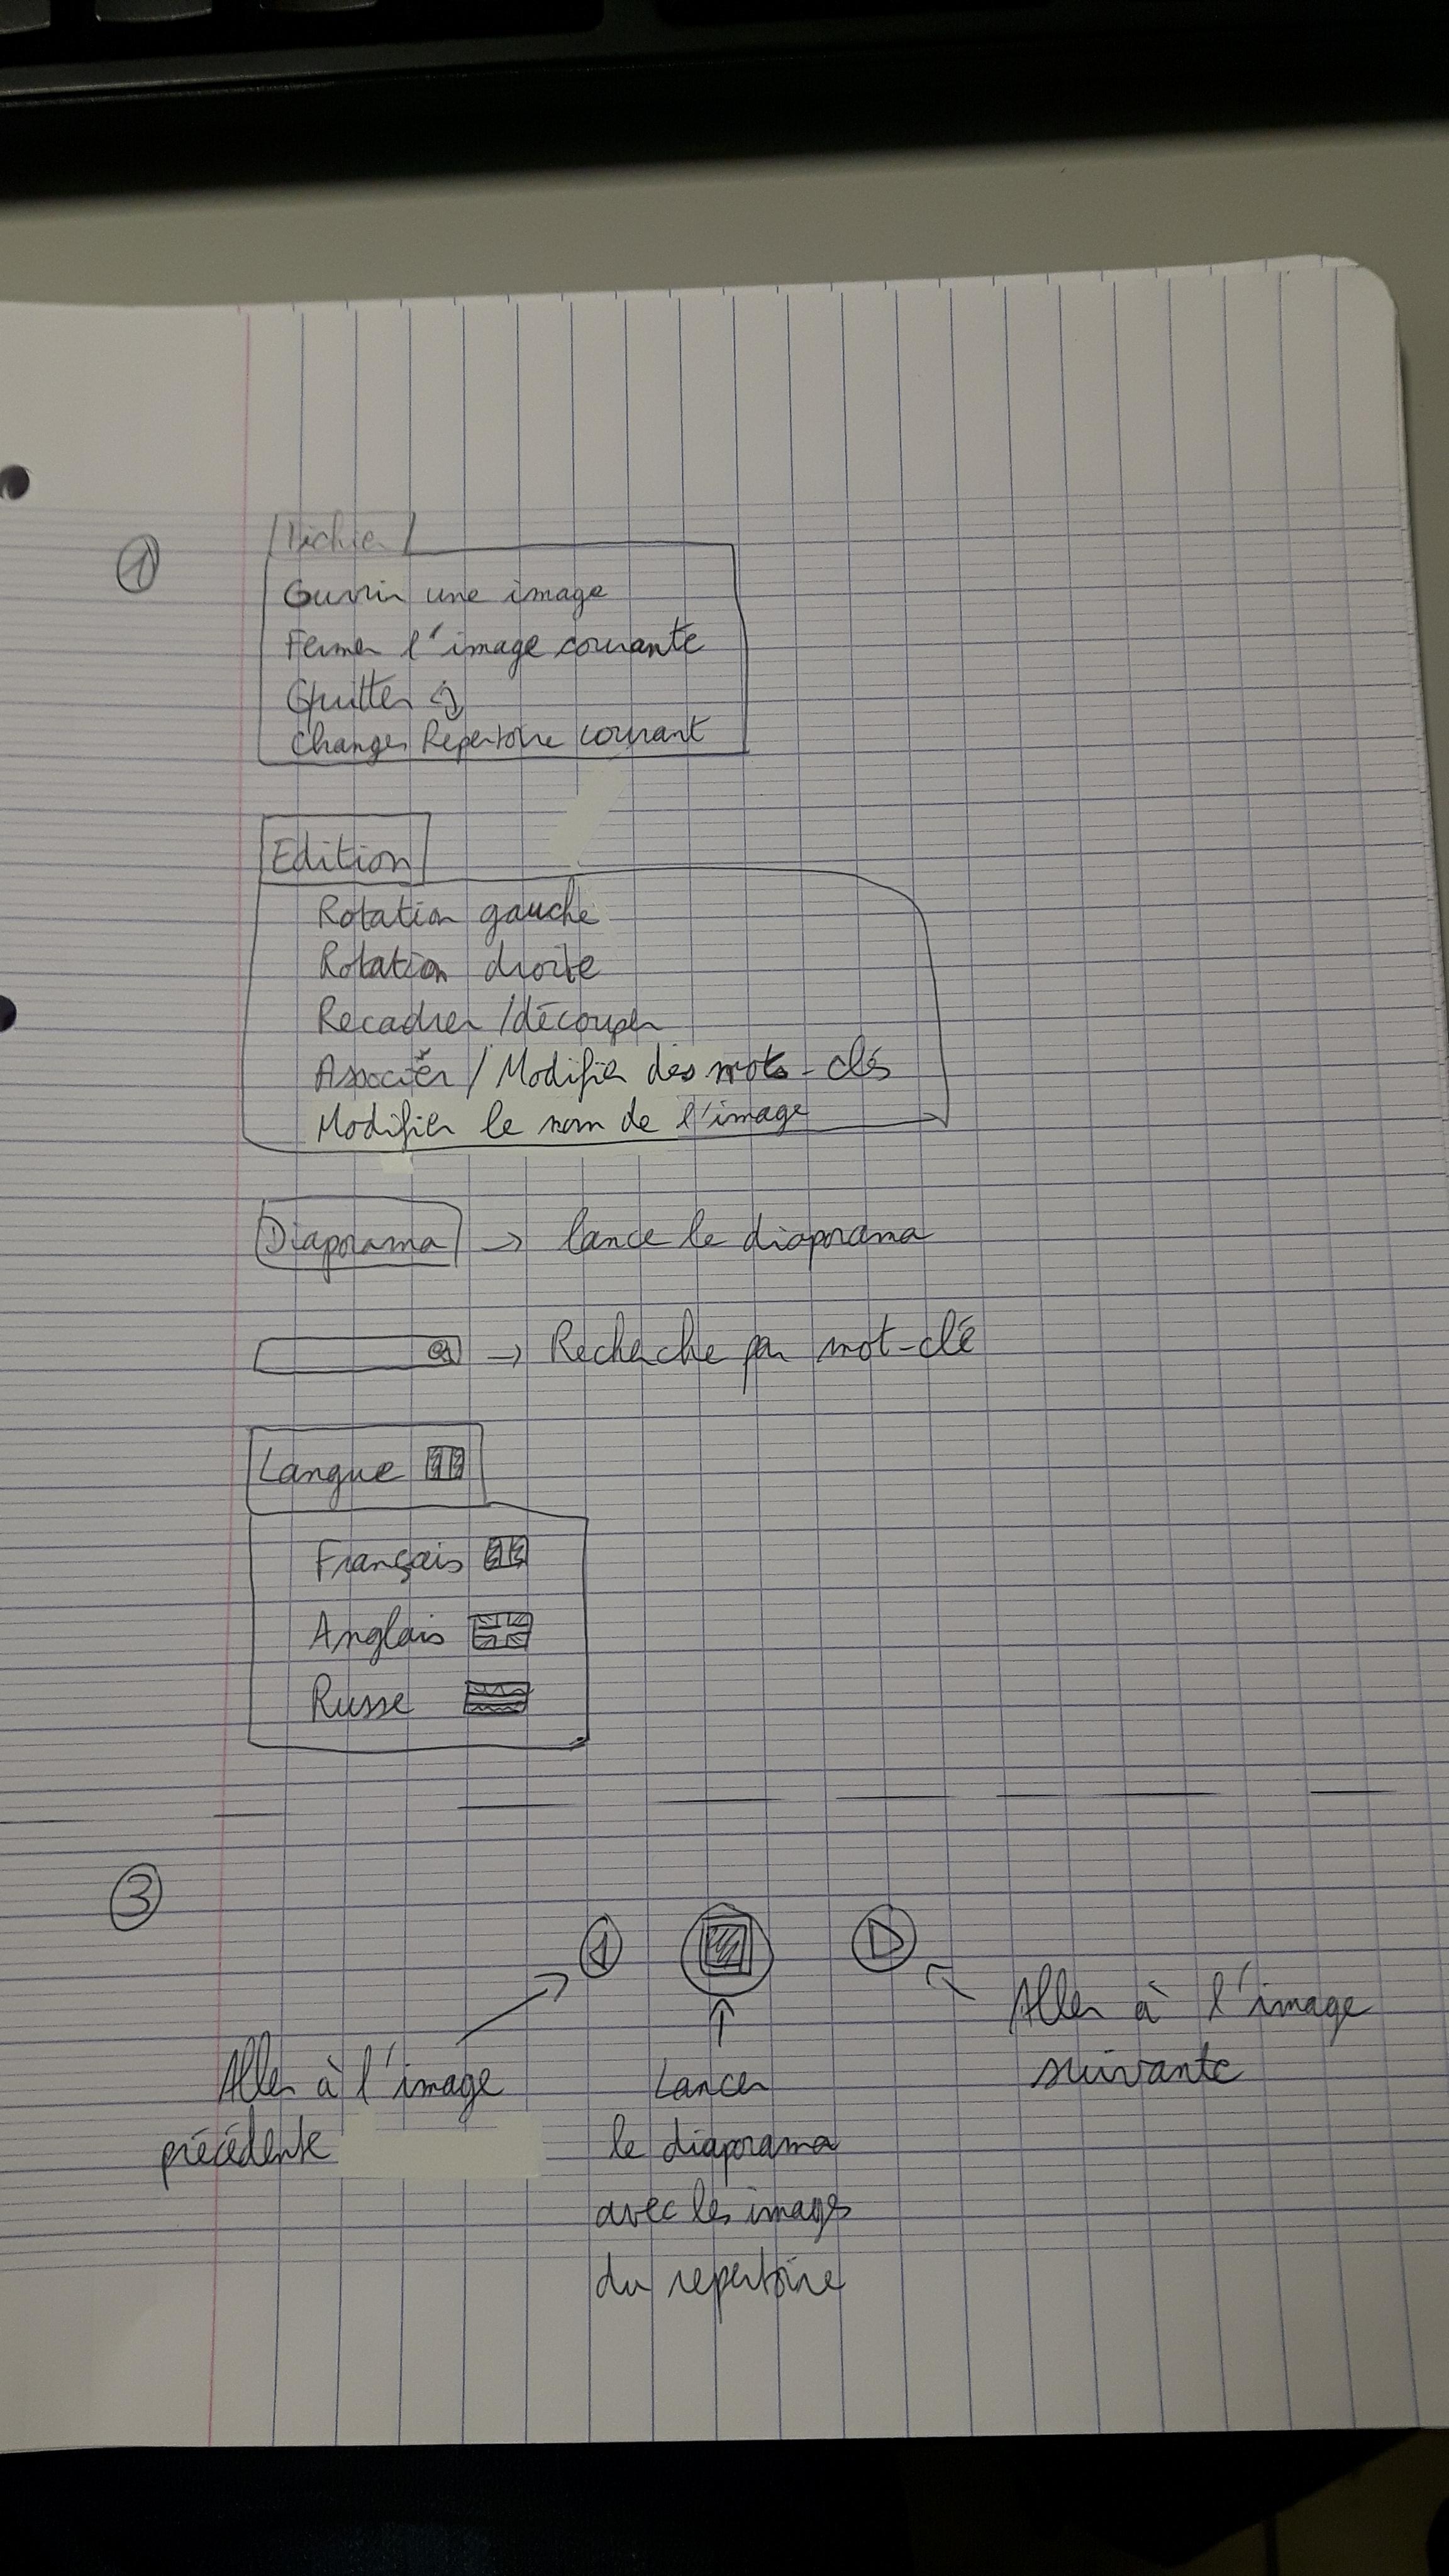 1
Fichier
Ouvrir une image
Fermer l'image courante
Quitter
Changer Repertoire courant
Edition
Rotation gauche
Rotation droite
Recadrer / découper
Associer / Modifier des mots-clés
Modifier le nom de l'image
Diaporama → lance le diaporama
→ Recherche par mot-clé
Langue
Français
Anglais
Russe
3
Aller à l'image
précédente
Lancer
le diaporama
avec les images
du repertoire
Aller à l'image
suivante